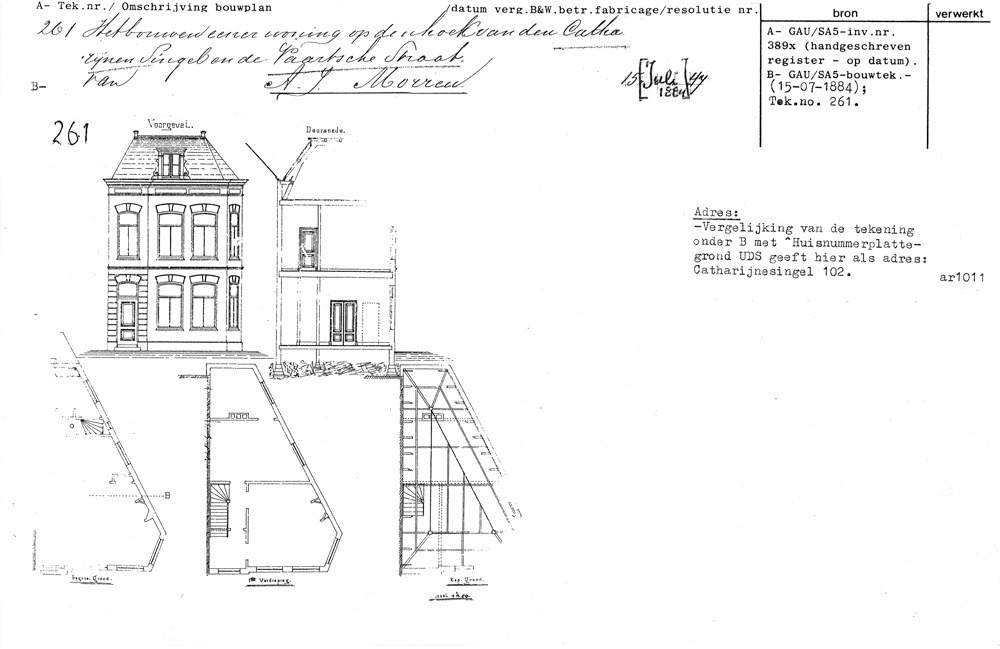 A- Tek.nr./ Omschrijving bouwplan /datum verg.B&W.betr.fabricage/resolutie nr. bron verwerkt
261 Het bouwen eener woning op den hoek van den Catha
rijnen Singel en de Vaartsche Straat.
B- van A. J. Morren 15 [Juli 1884] 44
A- GAU/SA5-inv.nr.
389x (handgeschreven
register - op datum).
B- GAU/SA5-bouwtek.-
(15-07-1884);
Tek.no. 261.
261
Voorgevel.
Doorsnede.
Adres:
-Vergelijking van de tekening
onder B met ^Huisnummerplatte-
grond UDS geeft hier als adres:
Catharijnesingel 102.
ar1011
Begane Grond.
1ste Verdieping.
Kap. Grond.